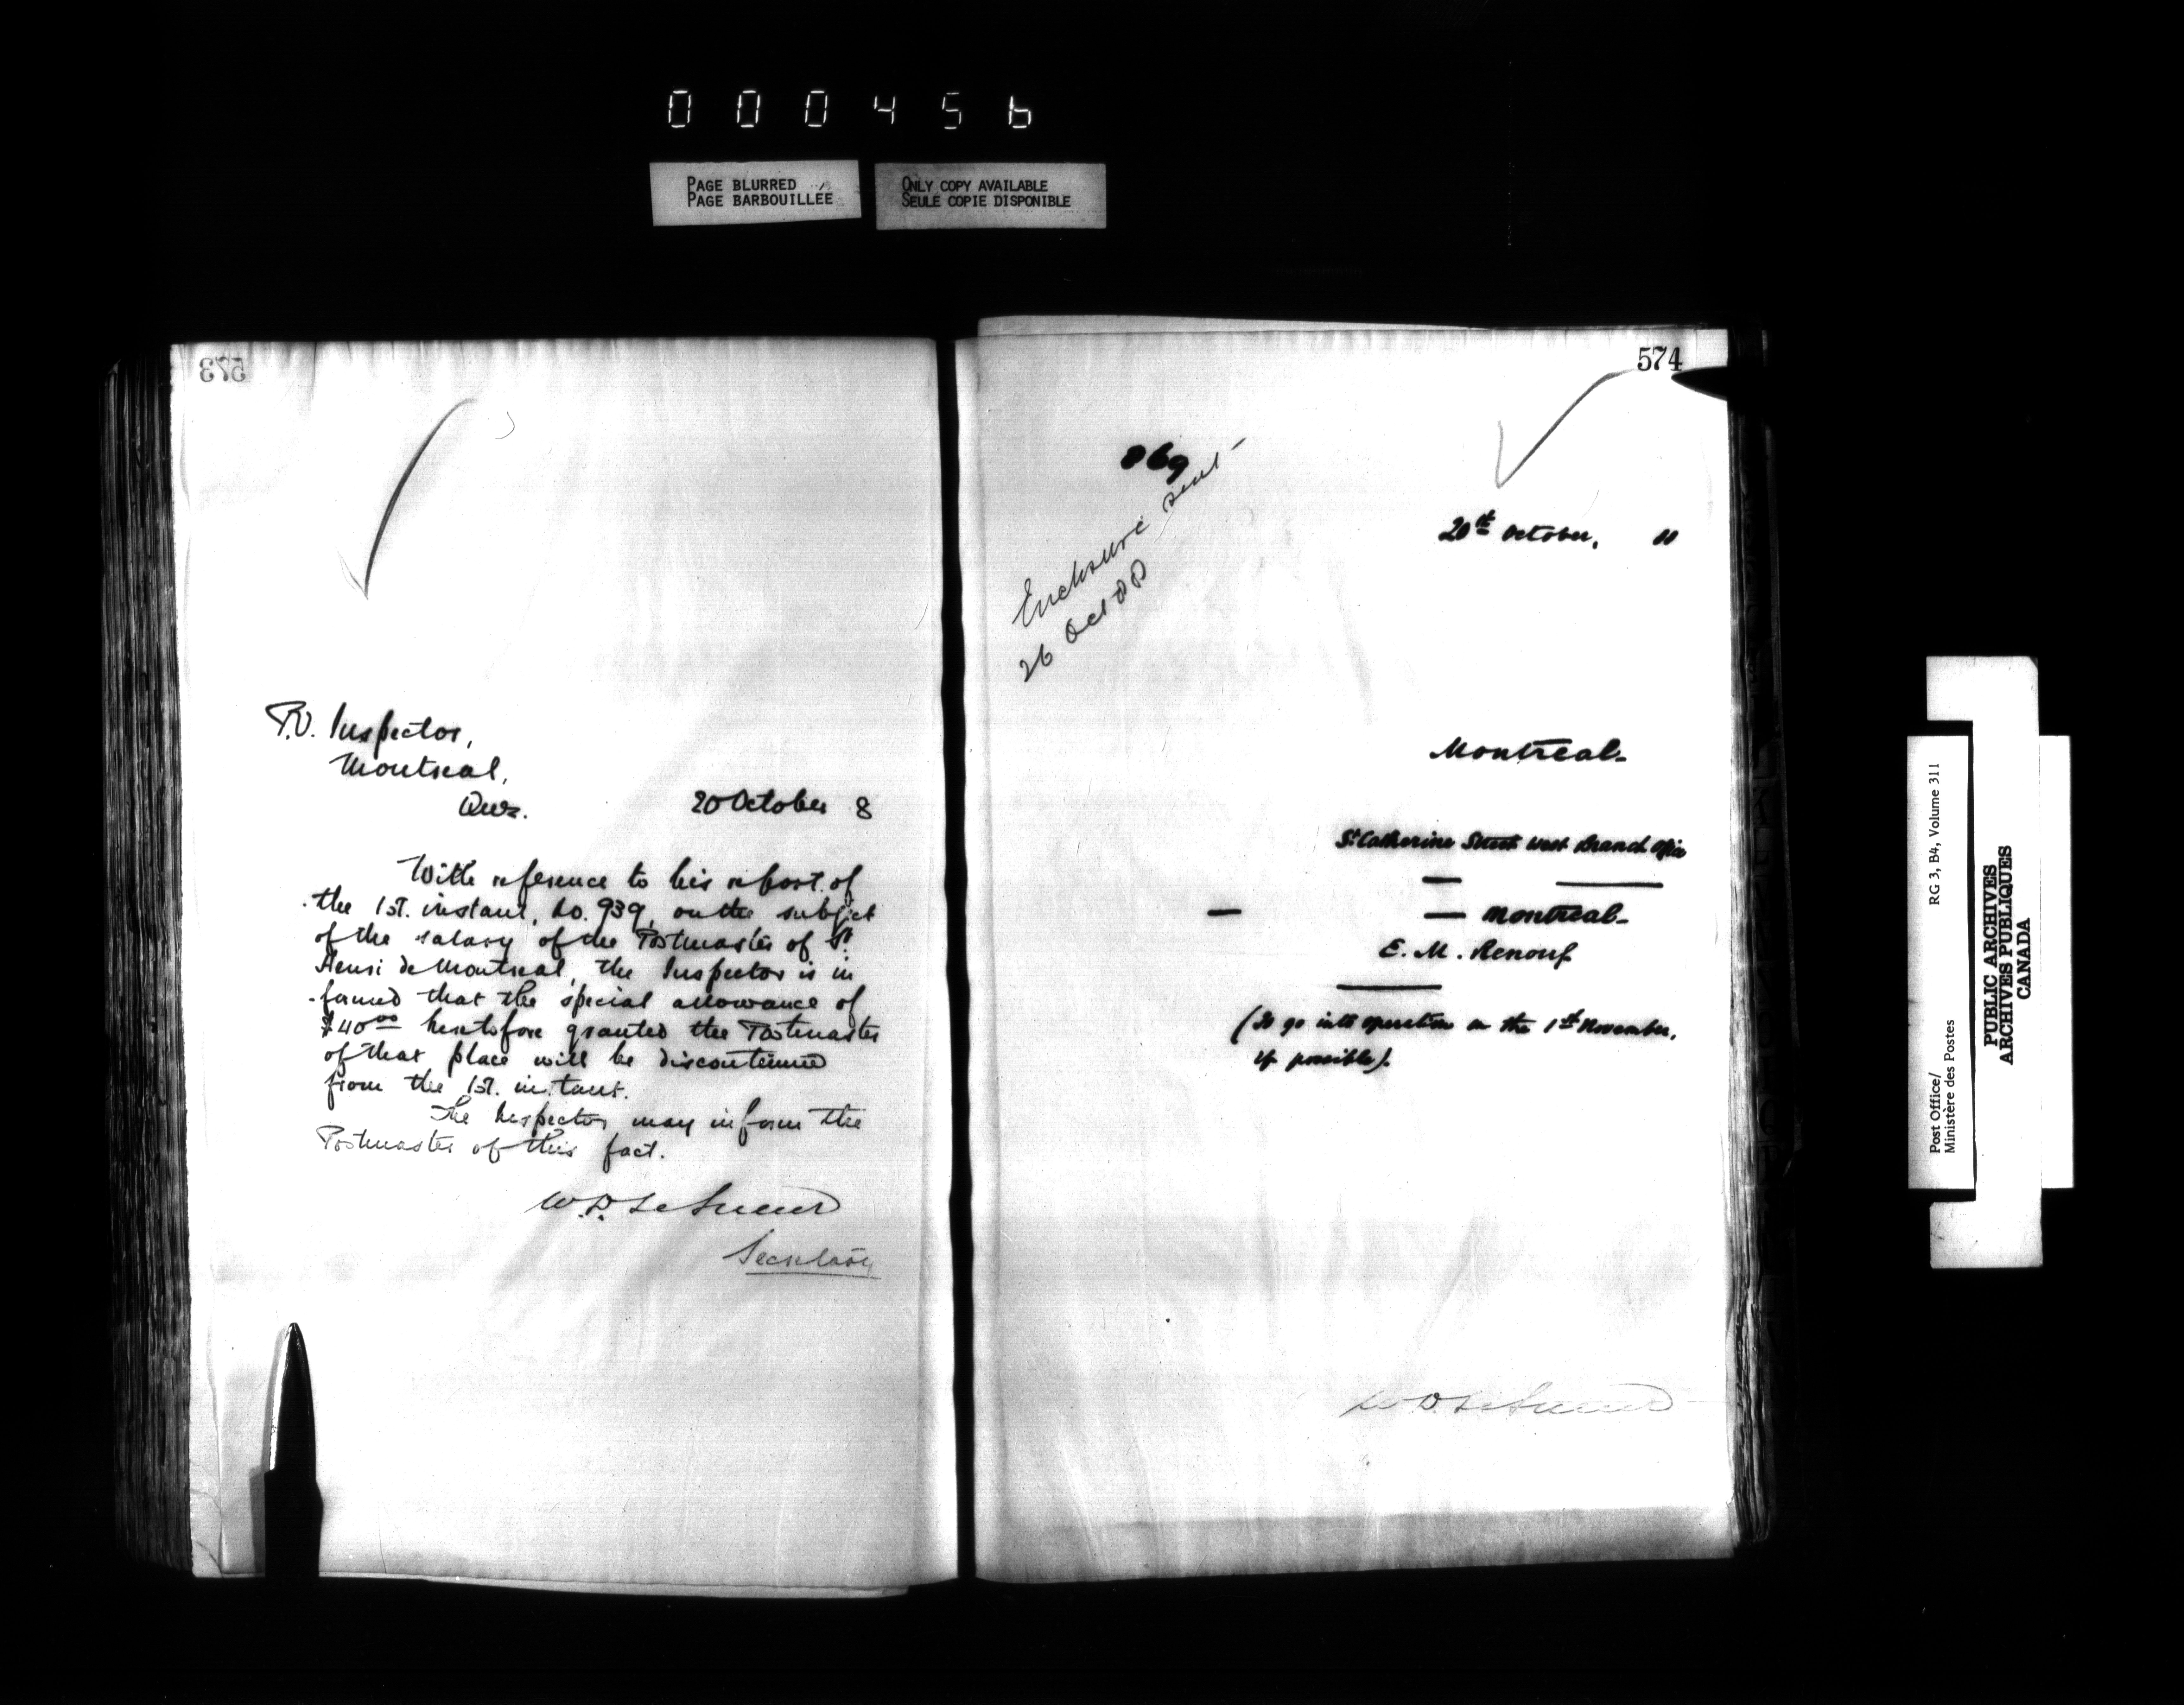 000456
PAGE BLURRED
PAGE BARBOUILLÉE
ONLY COPY AVAILABLE
SEULE COPIE DISPONIBLE
573
P.O. Inspector,
Montreal,
Que.
20 October 8
With reference to his report of
the 1st. instant, No. 939, on the subject
of the salary of the Postmaster of St.
Henri de Montreal, the Inspector is in
-formed that the special allowance of
$40.00 heretofore granted the Postmaster
of that place will be discontinued
from the 1st. instant.
The Inspector may inform the
Postmaster of this fact.
W.D. LeSueur
Secretary
574
869
Enclosure sent
26 Oct 88
20th October,
Montreal
St Catherine Street West Branch Office
— —
— — Montreal
E. M. Renouf
—
(To go into operation on the 1st November,
if possible).
W.D. LeSueur
Post Office/
Ministère des Postes
RG 3, B4, Volume 311
PUBLIC ARCHIVES
ARCHIVES PUBLIQUES
CANADA